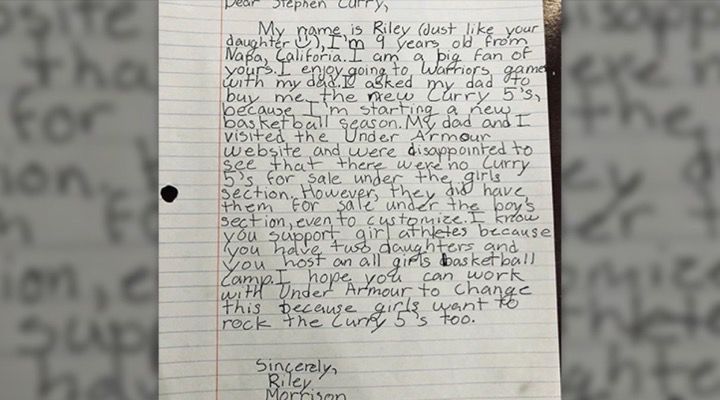 Dear Stephen Curry,
My name is Riley (Just like your
daughter), I'm 9 years old from
Napa, Califoria. I am a big fan of
yours. I enjoy going to Warriors game
with my dad. I asked my dad to
buy me the new Curry 5's,
because I'm starting a new
basketball season. My dad and I
visited the Under Armour
website and were disappointed to
see that there were no Curry
5's for sale under the girls
section. However, they did have
them for sale under the boy's
section, even to customize. I know
you support girl athletes because
you have two daughters and
you host an all girls basketball
camp. I hope you can work
with Under Armour to change
this because girls want to
rock the Curry 5's too.
Sincerely,
Riley
Morrison